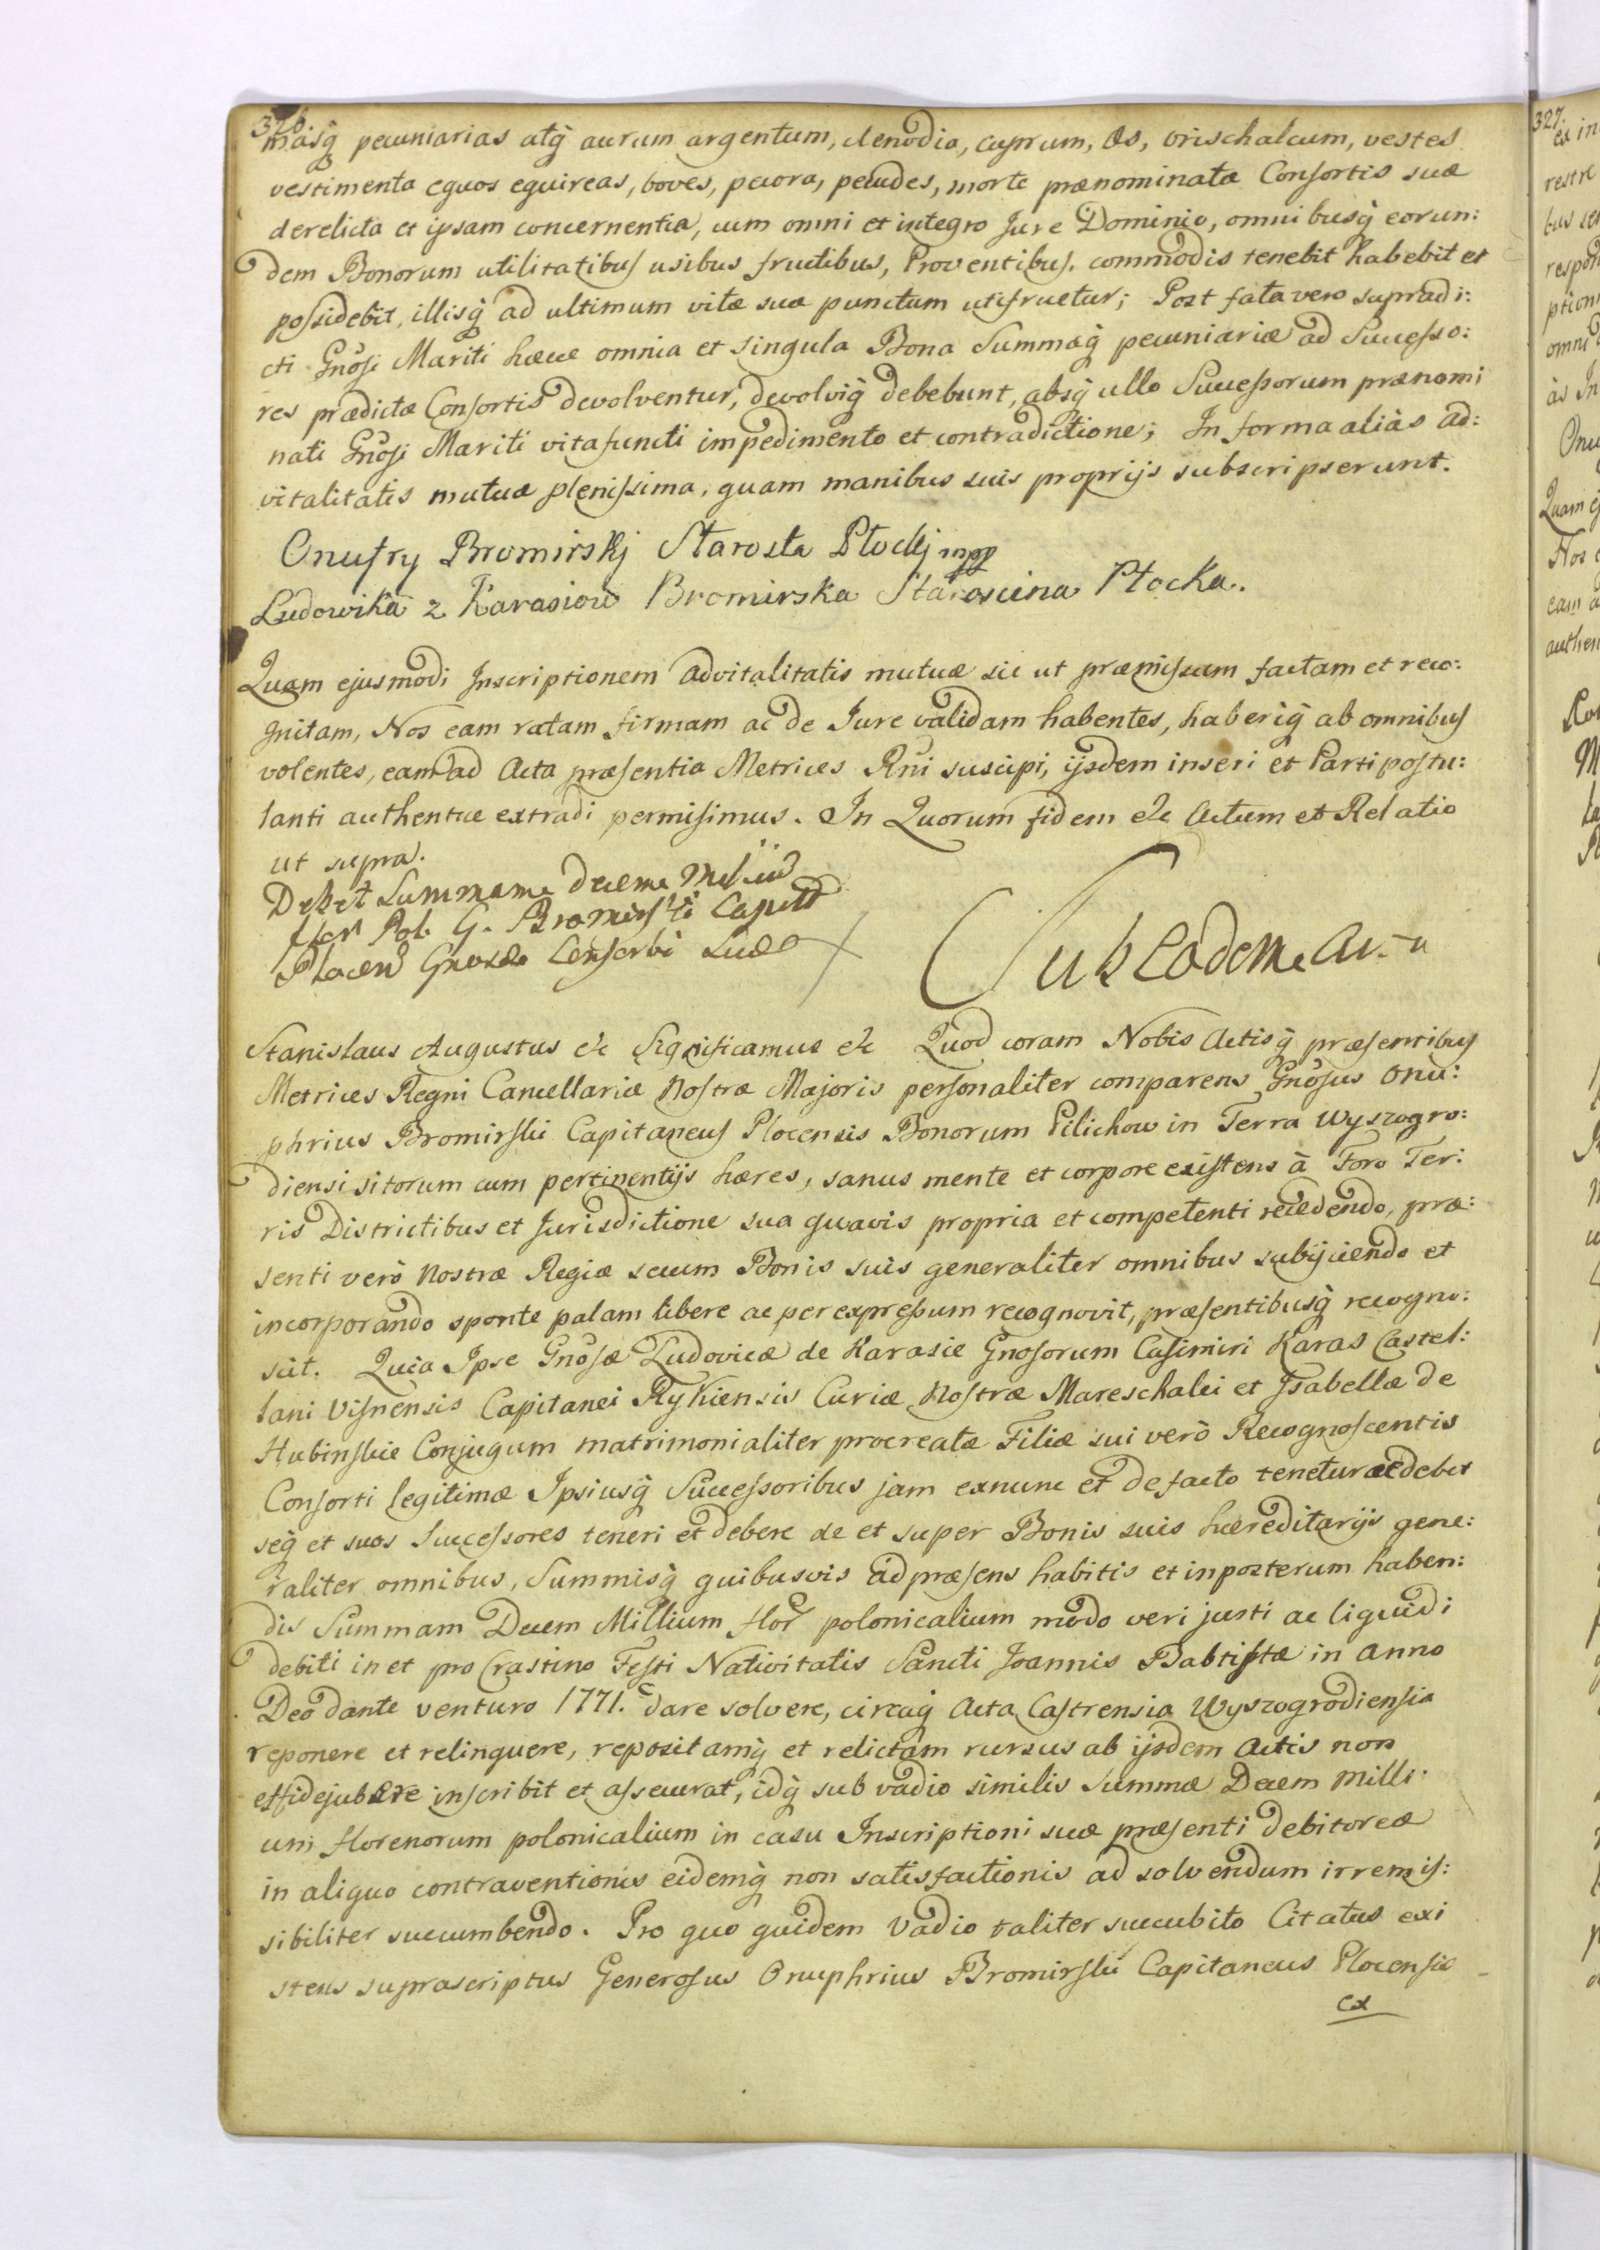 326.
masq̃ pecuniarias atq̃ aurum argentum, clenodia, cuprum, æs, orischalcum, vestes
vestimenta equos equireas, boves, pecora, pecudes, morte prænominatæ Consortis suæ
derelicta et ipsam concernentia, cum omni et integro Jure Dominio, omnibusq̃ eorun:
dem Bonorum utilitatibus usibus fructibus, Proventibus. commodis tenebit habebit et
possidebit, illisq̃ ad ultimum vitæ suæ punctum utifruetur; Post fata vero supradi:
cti Gnosi Mariti hæcce omnia et singula Bona Summæq̃ pecuniariæ ad Successo:
res prædictæ Consortis devolventur, devolviq̃ debebunt, absq̃ ullo Successorum prænomi
nati Gnosi Mariti vita functi impedimento et contradictione; In forma aliàs ad:
vitalitatis mutuæ plenissima, quam manibus suis proprijs subscripserunt.
Onufry Bromirskj Starosta Płockj mpp
Ludowika z Karasiow Bromirska Staroscina Płocka.
Quam ejusmodi Inscriptionem advitalitatis mutuæ sic ut præmissum factam et reco:
gnitam, Nos eam ratam firmam ac de Jure validam habentes, haberiq̃ ab omnibus
volentes, eam ad Acta præsentia Metrices Rñi suscipi, ijsdem inseri et Parti postu:
lanti authentice extradi permisimus. In Quorum fidem &c Actum et Relatio
ut supra.
Debet Summam decem Millium
flor Pol. G. Bromirski Capitt
Plocen Gnosæ Consorti suæ
Sub Eodem Actu
Stanislaus Augustus &c Significamus &c Quod coram Nobis Actisq̃ præsentibus
Metrices Regni Cancellariæ Nostræ Majoris personaliter comparens Gnosus Onu:
phrius Bromirski Capitaneus Plocensis Bonorum Pilichow in Terra Wyszogro:
diensi sitorum cum pertinentijs hæres, sanus mente et corpore existens à Foro Ter:
ris Districtibus et Jurisdictione sua quavis propria et competenti recedendo, præ:
senti verò Nostræ Regiæ secum Bonis suis generaliter omnibus subijciendo et
incorporando sponte palam libere ac per expressum recognovit, præsentibusq̃ recogno:
scit. Quia Ipse Gnosæ Ludovicæ de Karasie Gnosorum Casimiri Karas Castel:
lani Visnensis Capitanei Rykiensis Curiæ Nostræ Mareschalci et Isabellæ de
Hubinskie Conjugum matrimonialiter procreatæ Filiæ sui verò Recognoscentis
Consorti legitimæ Ipsiusq̃ Successoribus jam exnunc et de facto tenetur ac debet
seq̃ et suos Successores teneri et debere de et super Bonis suis hæreditarijs gene:
raliter omnibus, Summisq̃ quibusvis ad præsens habitis et inposterum haben:
dis Summam Decem Millium flor polonicalium modo veri justi ac liquidi
debiti in et pro Crastino Festi Nativitatis Sancti Joannis Babtistæ in anno
Deo dante venturo 1771. dare solvere, circaq̃ Acta Castrensia Wyszogrodiensia
reponere et relinquere, repositamq̃ et relictam rursus ab ijsdem Actis non
effidejubere inscribit et assecurat, idq̃ sub vadio similis summæ Decem Milli:
um florenorum polonicalium in casu Inscriptioni suæ præsenti debitoreæ
in aliquo contraventionis eidemq̃ non satisfactionis ad solvendum irremis:
sibiliter succumbendo. Pro quo quidem Vadio taliter succubito Citatus exi
stens suprascriptus Generosus Onuphrius Bromirski Capitaneus Plocensis
ex
327.
ex in
restre